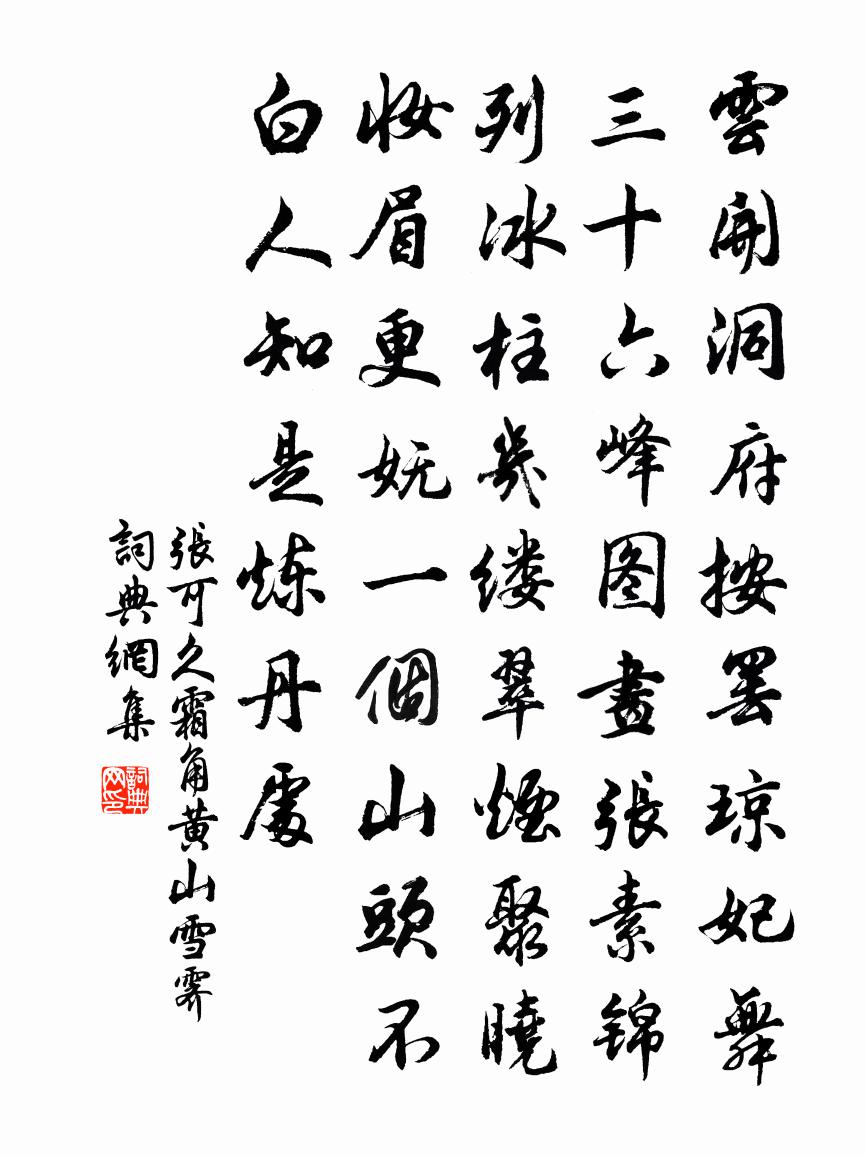 雲開洞府按罢琼妃舞
三十六峰图畫張素锦
列冰柱幾缕翠煙聚曉
妆眉更妩一個山頭不
白人知是炼丹處
張可久霜角黄山雪霽
詞典網集
詞典
网印